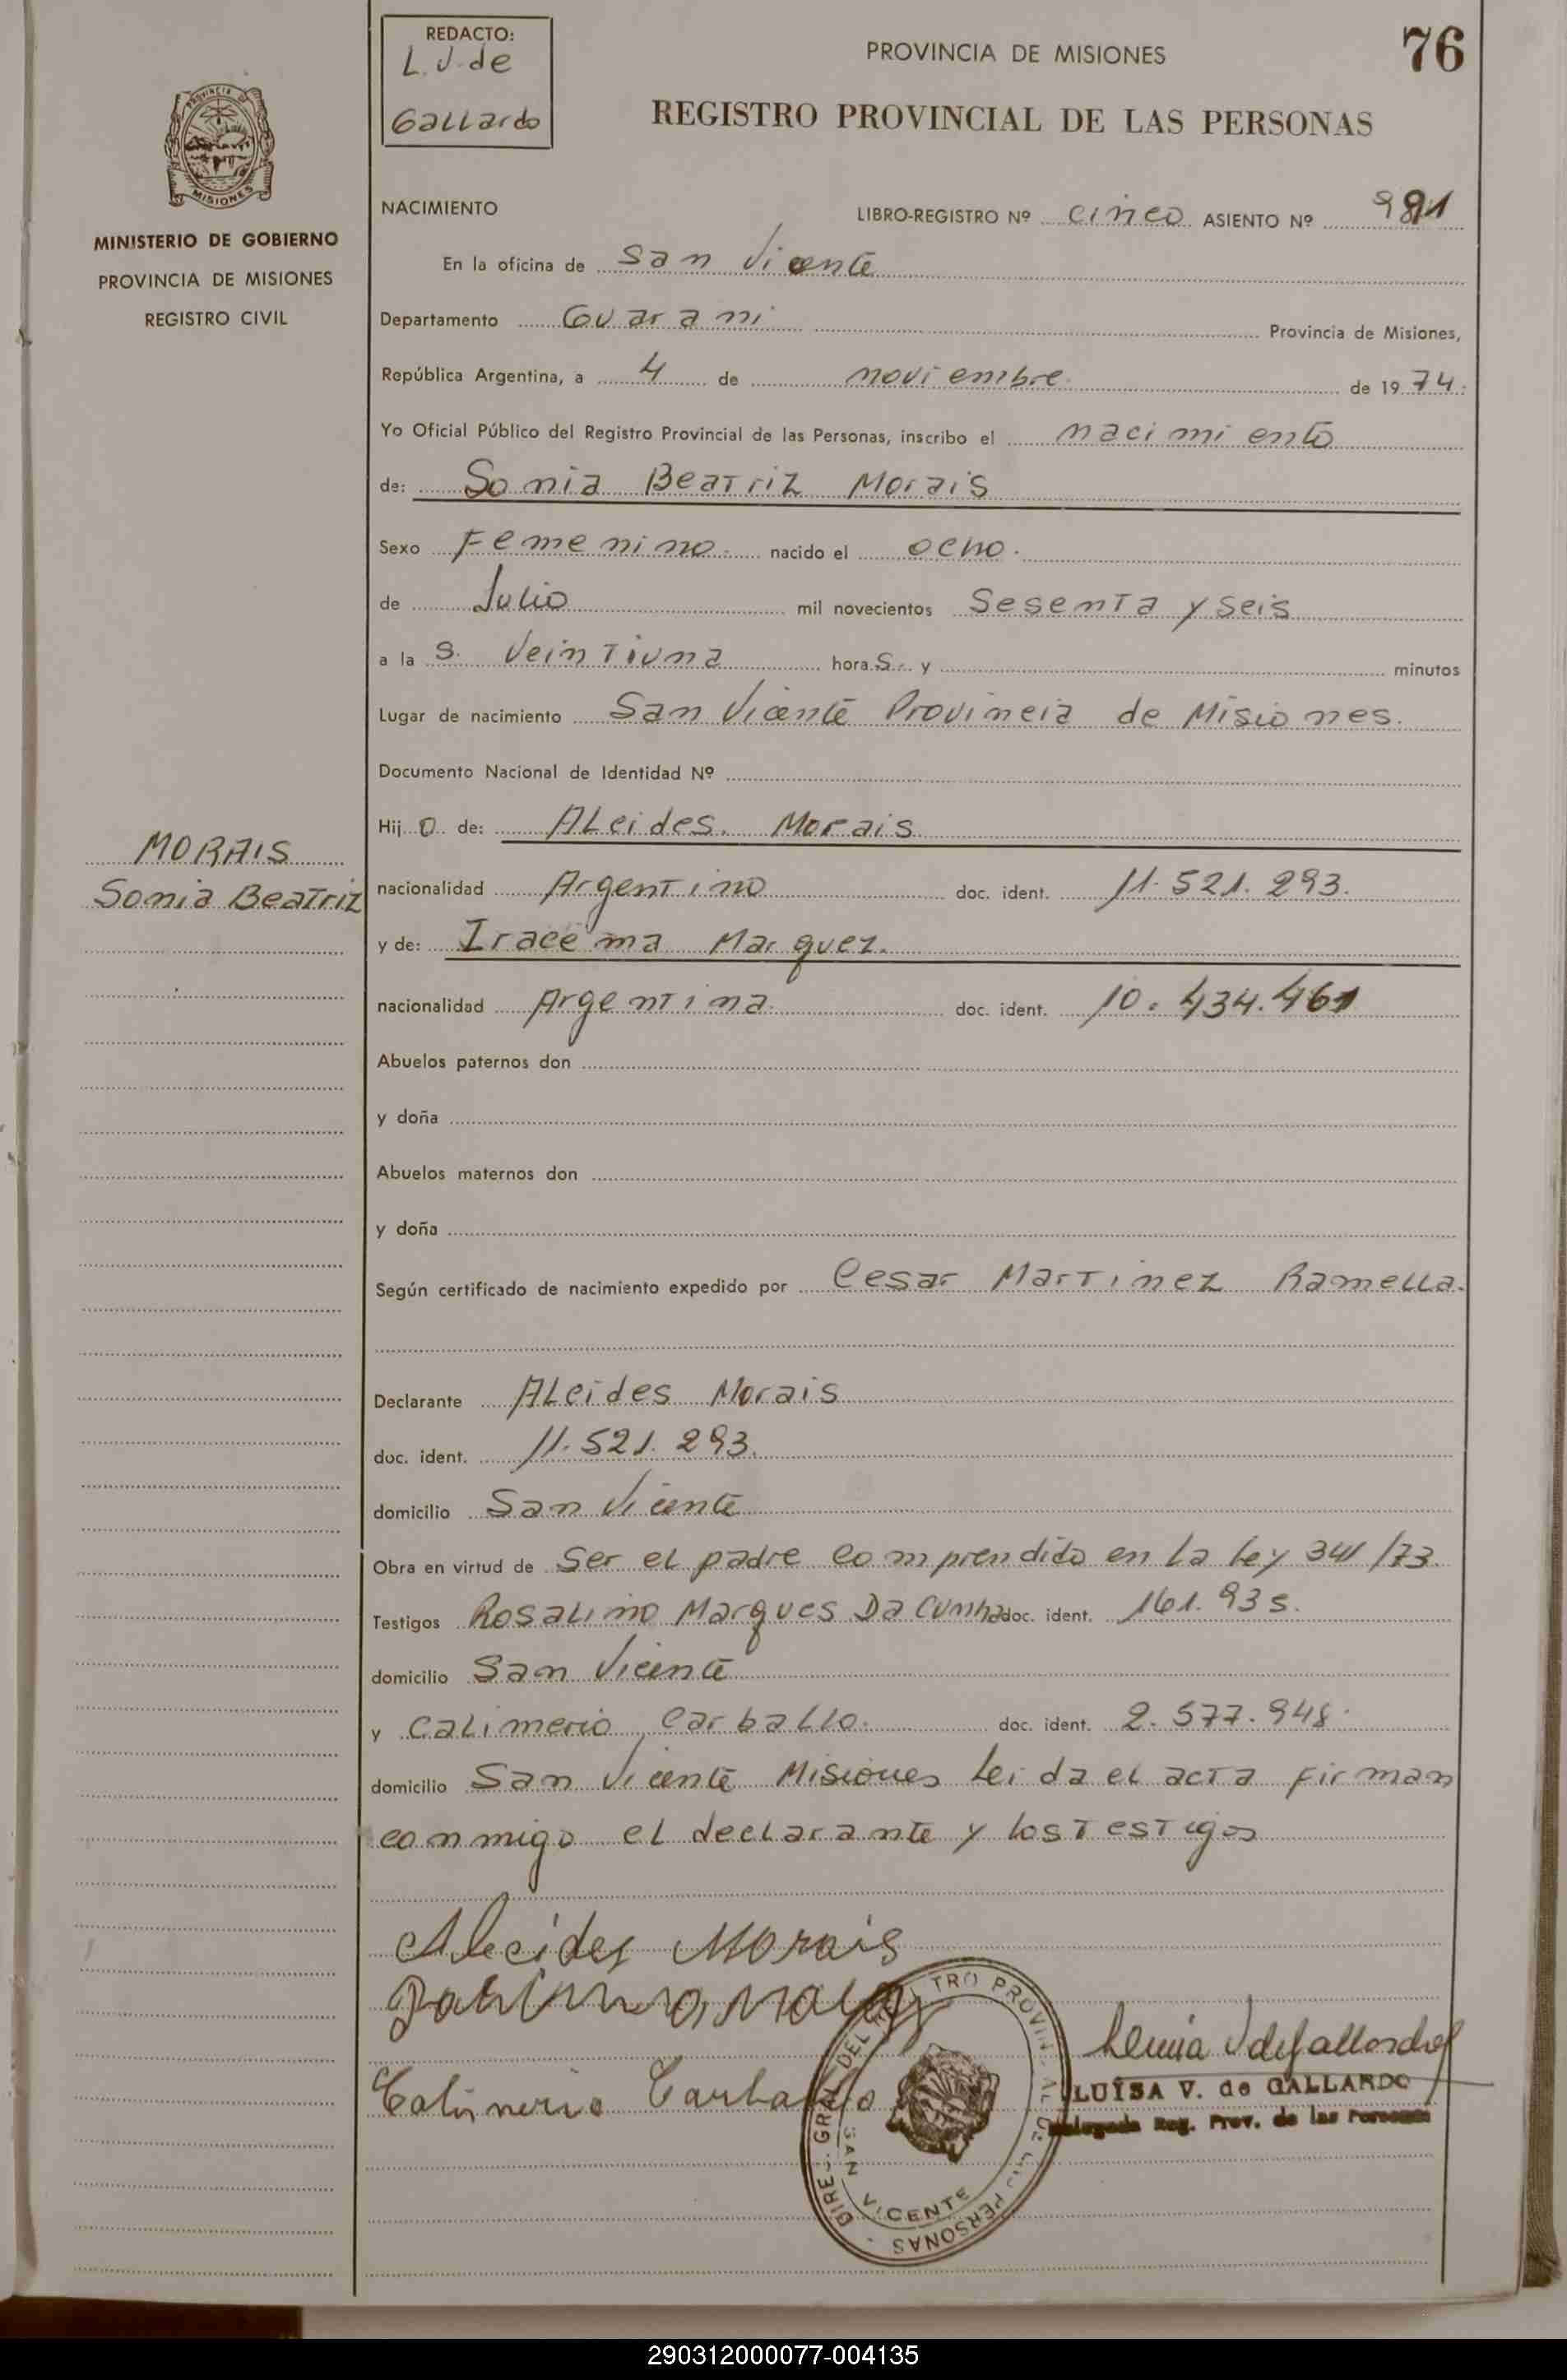 REDACTO:
L. V. de
Gallardo
PROVINCIA DE MISIONES
76
REGISTRO PROVINCIAL DE LAS PERSONAS
MISIONES
MINISTERIO DE GOBIERNO
PROVINCIA DE MISIONES
REGISTRO CIVIL
NACIMIENTO
LIBRO-REGISTRO Nº cinco ASIENTO Nº 981
En la oficina de San Vicente
Departamento Guarani Provincia de Misiones,
República Argentina, a 4 de noviembre de 1974.
Yo Oficial Público del Registro Provincial de las Personas, inscribo el nacimiento
de: Sonia Beatriz Morais
Sexo Femenino nacido el ocho.
de Julio mil novecientos Sesenta y seis
a las. Veintiuna horas. y minutos
Lugar de nacimiento San Vicente Provincia de Misiones.
Documento Nacional de Identidad Nº
MORAIS
Sonia Beatriz
Hijo de: Alcides. Morais
nacionalidad Argentino doc. ident. 11.521.293.
y de: Iracema Marquez.
nacionalidad Argentina doc. ident. 10.434.461
Abuelos paternos don
y doña
Abuelos maternos don
y doña
Según certificado de nacimiento expedido por Cesar Martinez Ramella.
Declarante Alcides Morais
doc. ident. 11.521.293.
domicilio San Vicente
Obra en virtud de Ser el padre comprendido en la ley 341/73
Testigos Rosalino Marques Da Cunha doc. ident. 161.935.
domicilio San Vicente
y Calimerio Carballo. doc. ident. 2.577.948.
domicilio San Vicente Misiones leida el acta firman
conmigo el declarante y los testigos
Alecides Morais
Calimerio Carballo
LUISA V. de GALLARDO
Delegada Reg. Prov. de las Personas
DIREC. GRAL. DEL REGISTRO PROVINCIAL DE LAS PERSONAS
SAN VICENTE
290312000077-004135